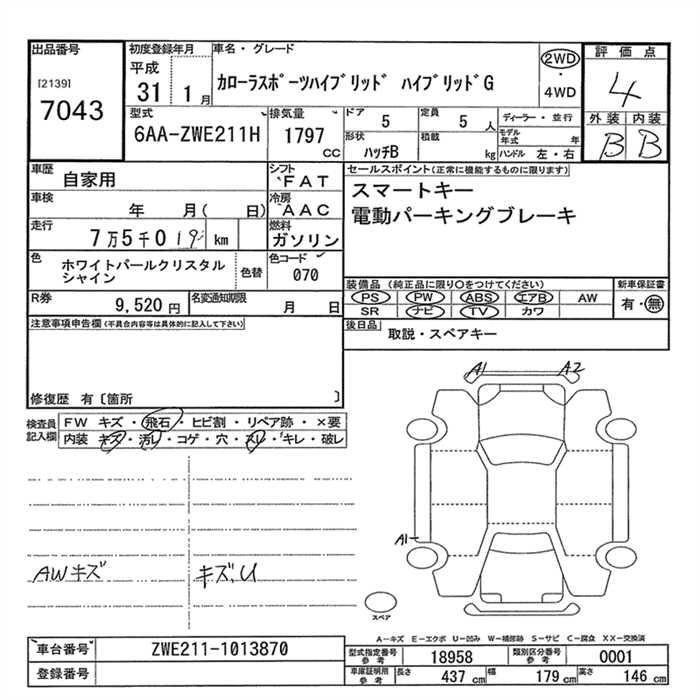 出品番号
[2139]
7043
初度登録年月
平成
31 1月
車名・グレード
カローラスポーツハイブリッド ハイブリッドG
2WD
・
4WD
評価点
4
外装 内装
B B
型式
6AA-ZWE211H
排気量
1797
CC
ドア
5
定員
5人
形状
ハッチB
積載
kg
ディーラー・並行
モデル年式 年
ハンドル 左・右
車歴
自家用
シフト
FAT
車検
年 月( 日)
冷房
AAC
走行
7万5千019 km
燃料
ガソリン
色
ホワイトパールクリスタル
シャイン
色替
色コード
070
セールスポイント(正常に機能するものに限ります)
スマートキー
電動パーキングブレーキ
R券
9,520円
名変通知期限
月 日
装備品(純正品に限り〇をつけてください)
PS PW ABS エアB AW
SR ナビ TV カワ
新車保証書
有・無
後日品
取説・スペアキー
注意事項申告欄(不具合内容等は具体的に記入して下さい)
修復歴 有〔箇所 〕
検査員
記入欄
FW キズ・飛石・ヒビ割・リペア跡・×要
内装 キズ・汚れ・コゲ・穴・スレ・キレ・破レ
AWキズ
キズ,U
A1
A2
A1
スペア
A―キズ E―エクボ U―凹み W―補修跡 S―サビ C―腐食 XX―交換済
車台番号
ZWE211-1013870
登録番号
型式指定番号
参考
18958
類別区分番号
参考
0001
車庫証明用
参考
長さ
437 cm
幅
179 cm
高さ
146 cm